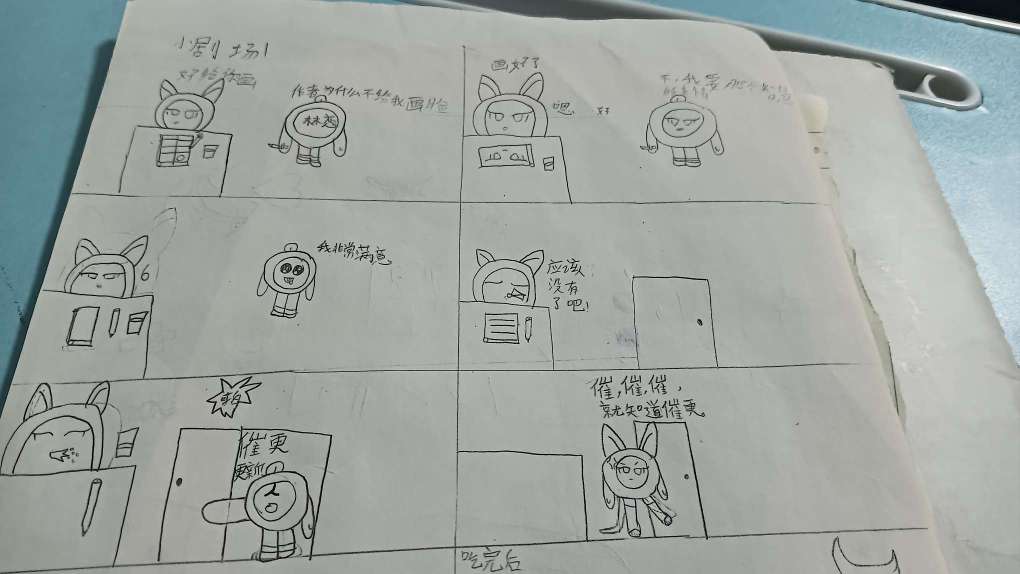 小剧场1
好给你画
作者为什么不给我画脸
林克
画好了
嗯
好
不,我要
6
我非常满意
应该
没有
了吧!
催更
催,催,催,
就知道催更
吃完后